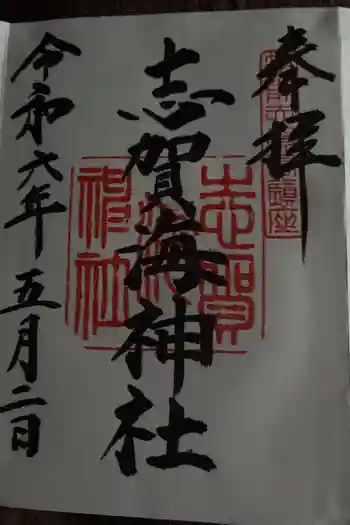 奉拝
志賀海神社
令和六年五月二日
志賀海神社